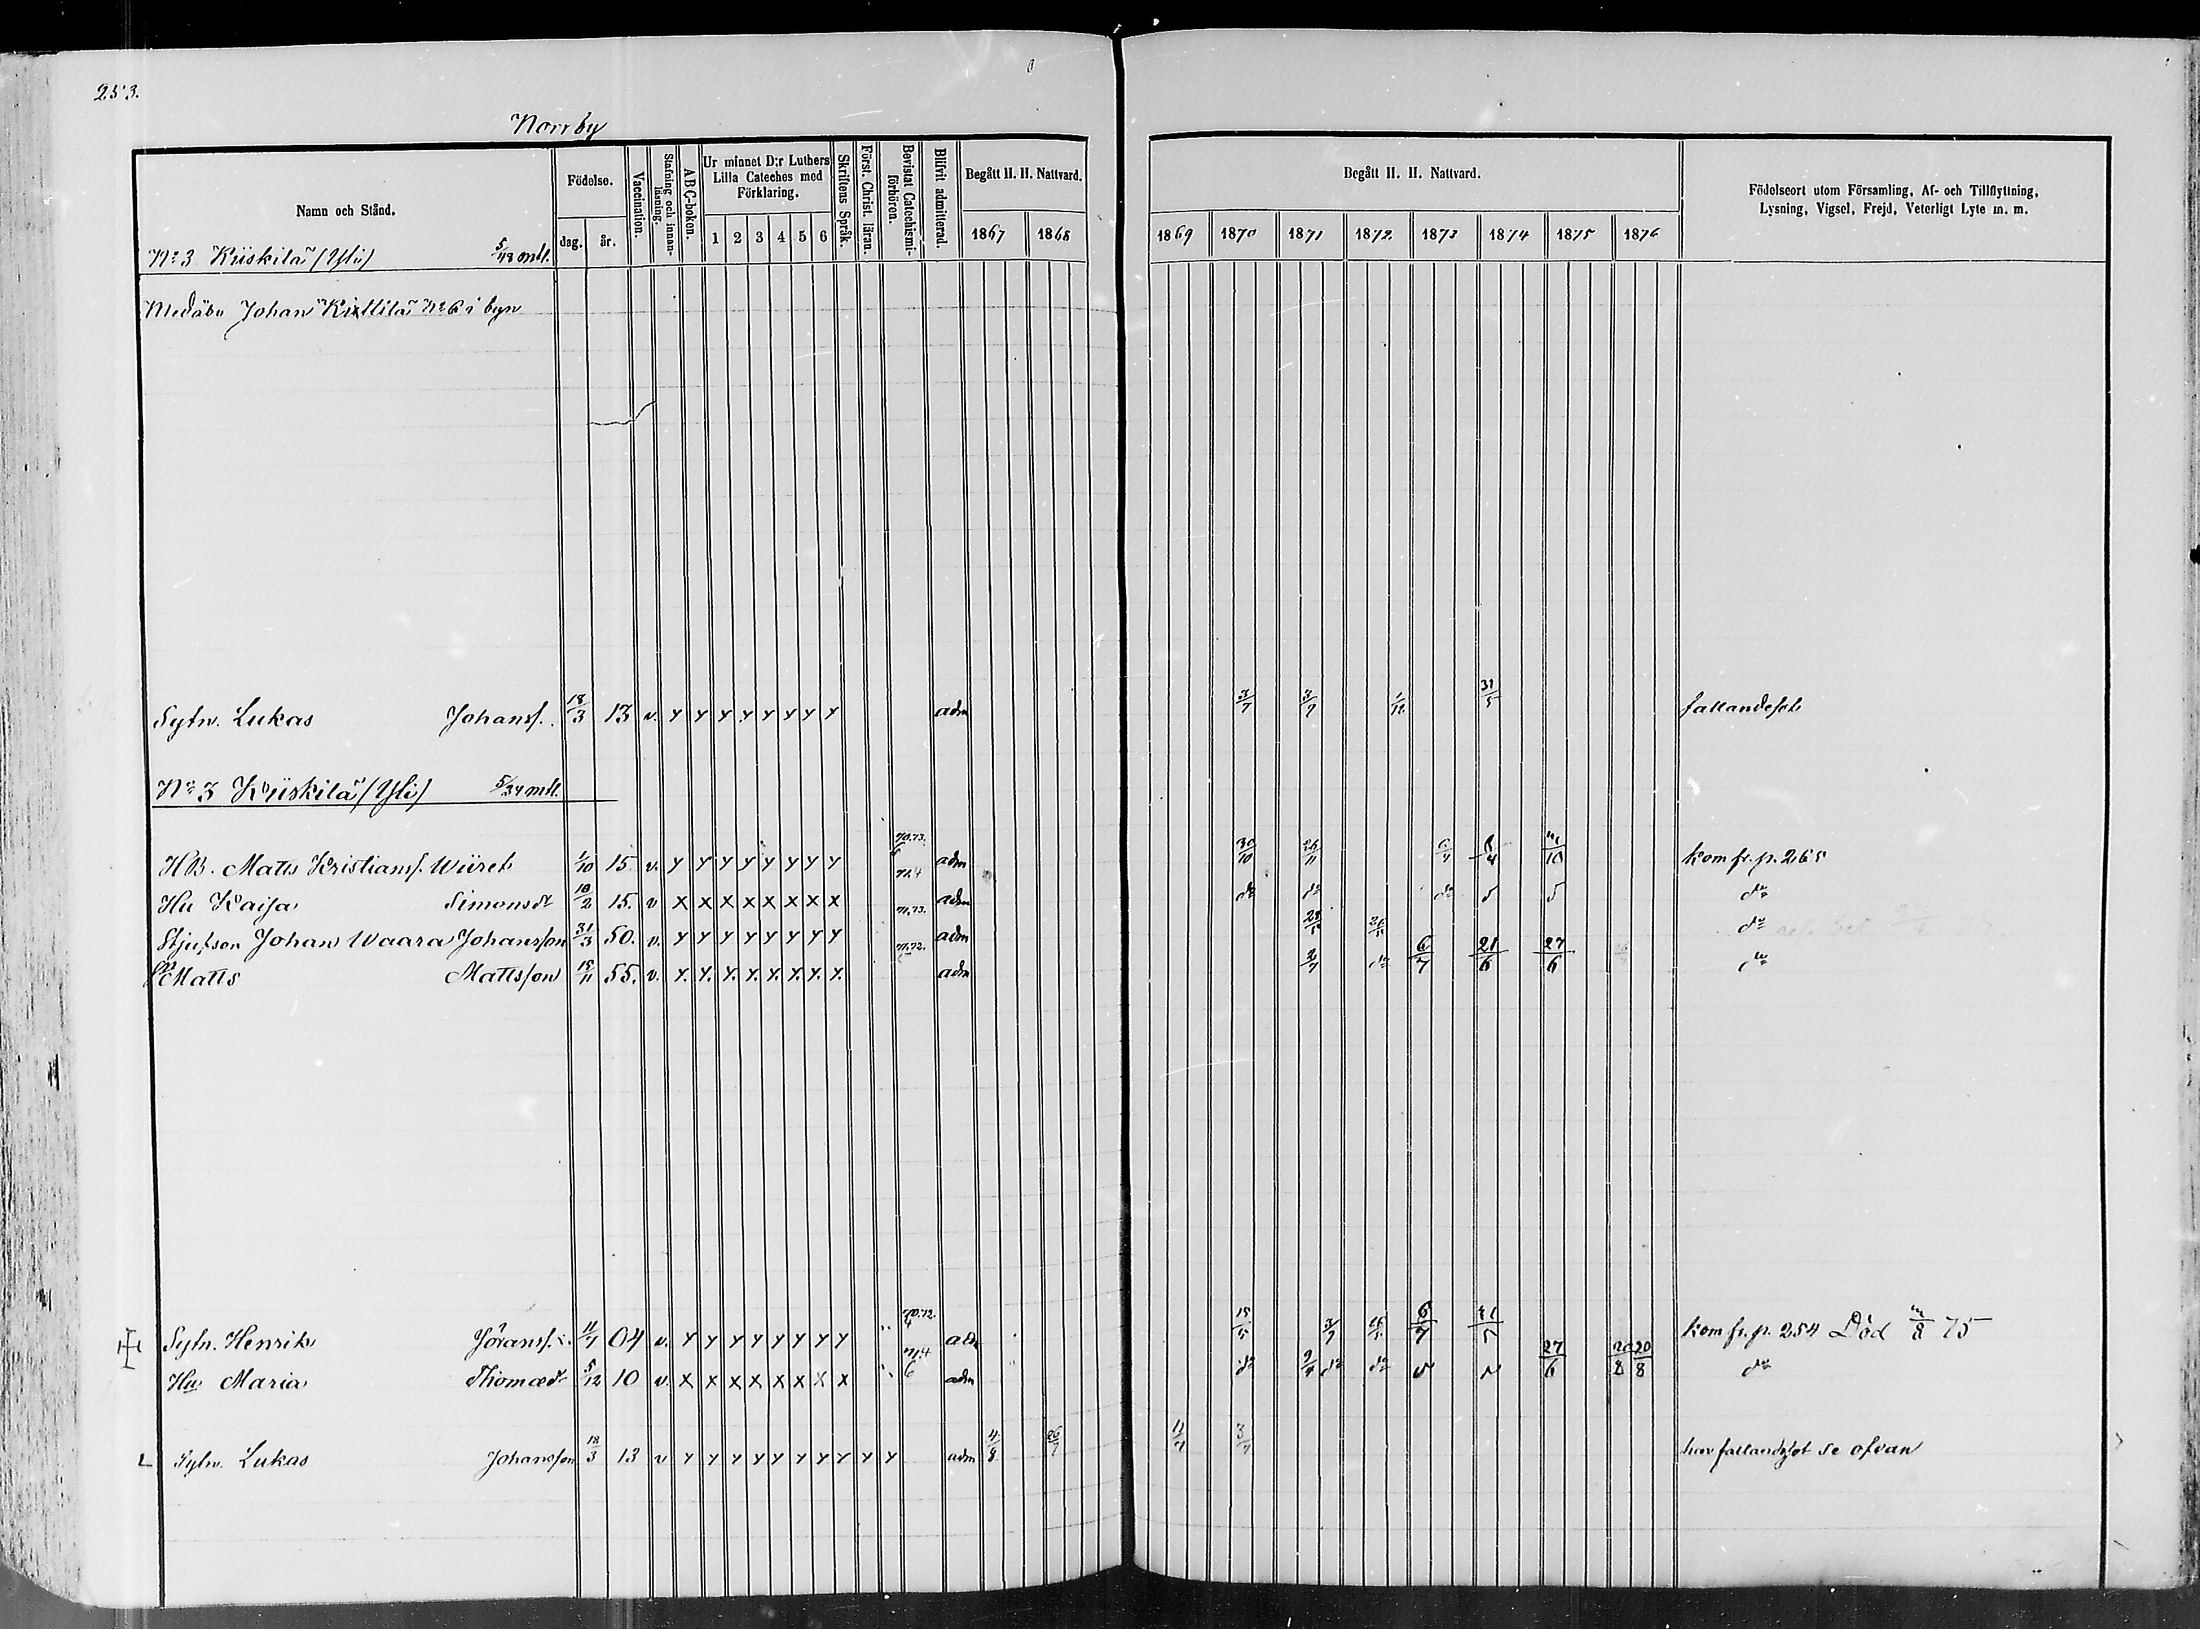 253.
Norrby
Namn och Stånd.
Födelse.
dag.
år.
Vaccination.
Stafning och innanläsning.
ABC-boken.
Ur minnet D:r Luthers Lilla Cateches med Förklaring.
1 2 3 4 5 6
Skriftens Språk.
Först. Christ. läran.
Bevistat Catechismi-förhören.
Blifvit admitterad.
Begått H. H. Nattvard.
1867 1868
Begått H. H. Nattvard.
1869 1870 1871 1872 1873 1874 1875 1876
Födelseort utom Församling, Af- och Tillflyttning,
Lysning, Vigsel, Frejd, Veterligt Lyte m. m.
No 3 Kiiskilä (Yli) 5/48 mtl.
Medåbo Johan Kittilä No 6 i byn
Sytn. Lukas Johanss. 18/3 13 v. adm 3/7 31/5
No 3 Kiiskilä (Yli) 5/34 mtl.
HB. Matts Kristianss. Wiiret 1/10 15 v. 70.73. adm 30/10 26/11 kom fr. p. 265
Hu Kaisa Simonsdr 10/2 15. v x x x x x x x x adm do do do do
Stjufson Johan Waara Johansson 31/3 50. v. 71.73. adm do
Matts Mattsson 15/11 55. v. 71.72. adm 2/7 do 6/7 21/6 27/6 do
Sytn. Henrik Jöranss. 11/7 04 v. 70.72. adm 3/7 6/7 kom fr. p. 254 Död 75
Hu Maria Thomædr 5/12 10 v. x x x x x x x x adm do do do 27/6 20/8 20/8 do
Sytn. Lukas Johansson 18/3 13 v adm 26/7 11/7 3/7 har fallandesot se ofvan